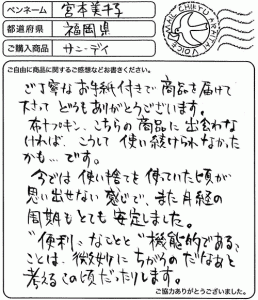 ペンネーム 宮本美千子
都道府県 福岡県
ご購入商品 サン・デイ
MAIL CHIKYU ARAITAI VOICE
ご自由に商品に関するご感想などお書きください。
ご丁寧なお手紙付きで商品を届けて
下さって どうもありがとうございます。
布ナプキン、こちらの商品に出会わな
ければ、こうして使い続けられなかった
かも…です。
今では使い捨てを使っていた頃が
思い出せない感じで、また月経の
周期もとても安定しました。
"便利"なことと"機能的である"
ことは、微妙にちがうのだなあと
考えるこの頃だったりします。
ご協力ありがとうございました。